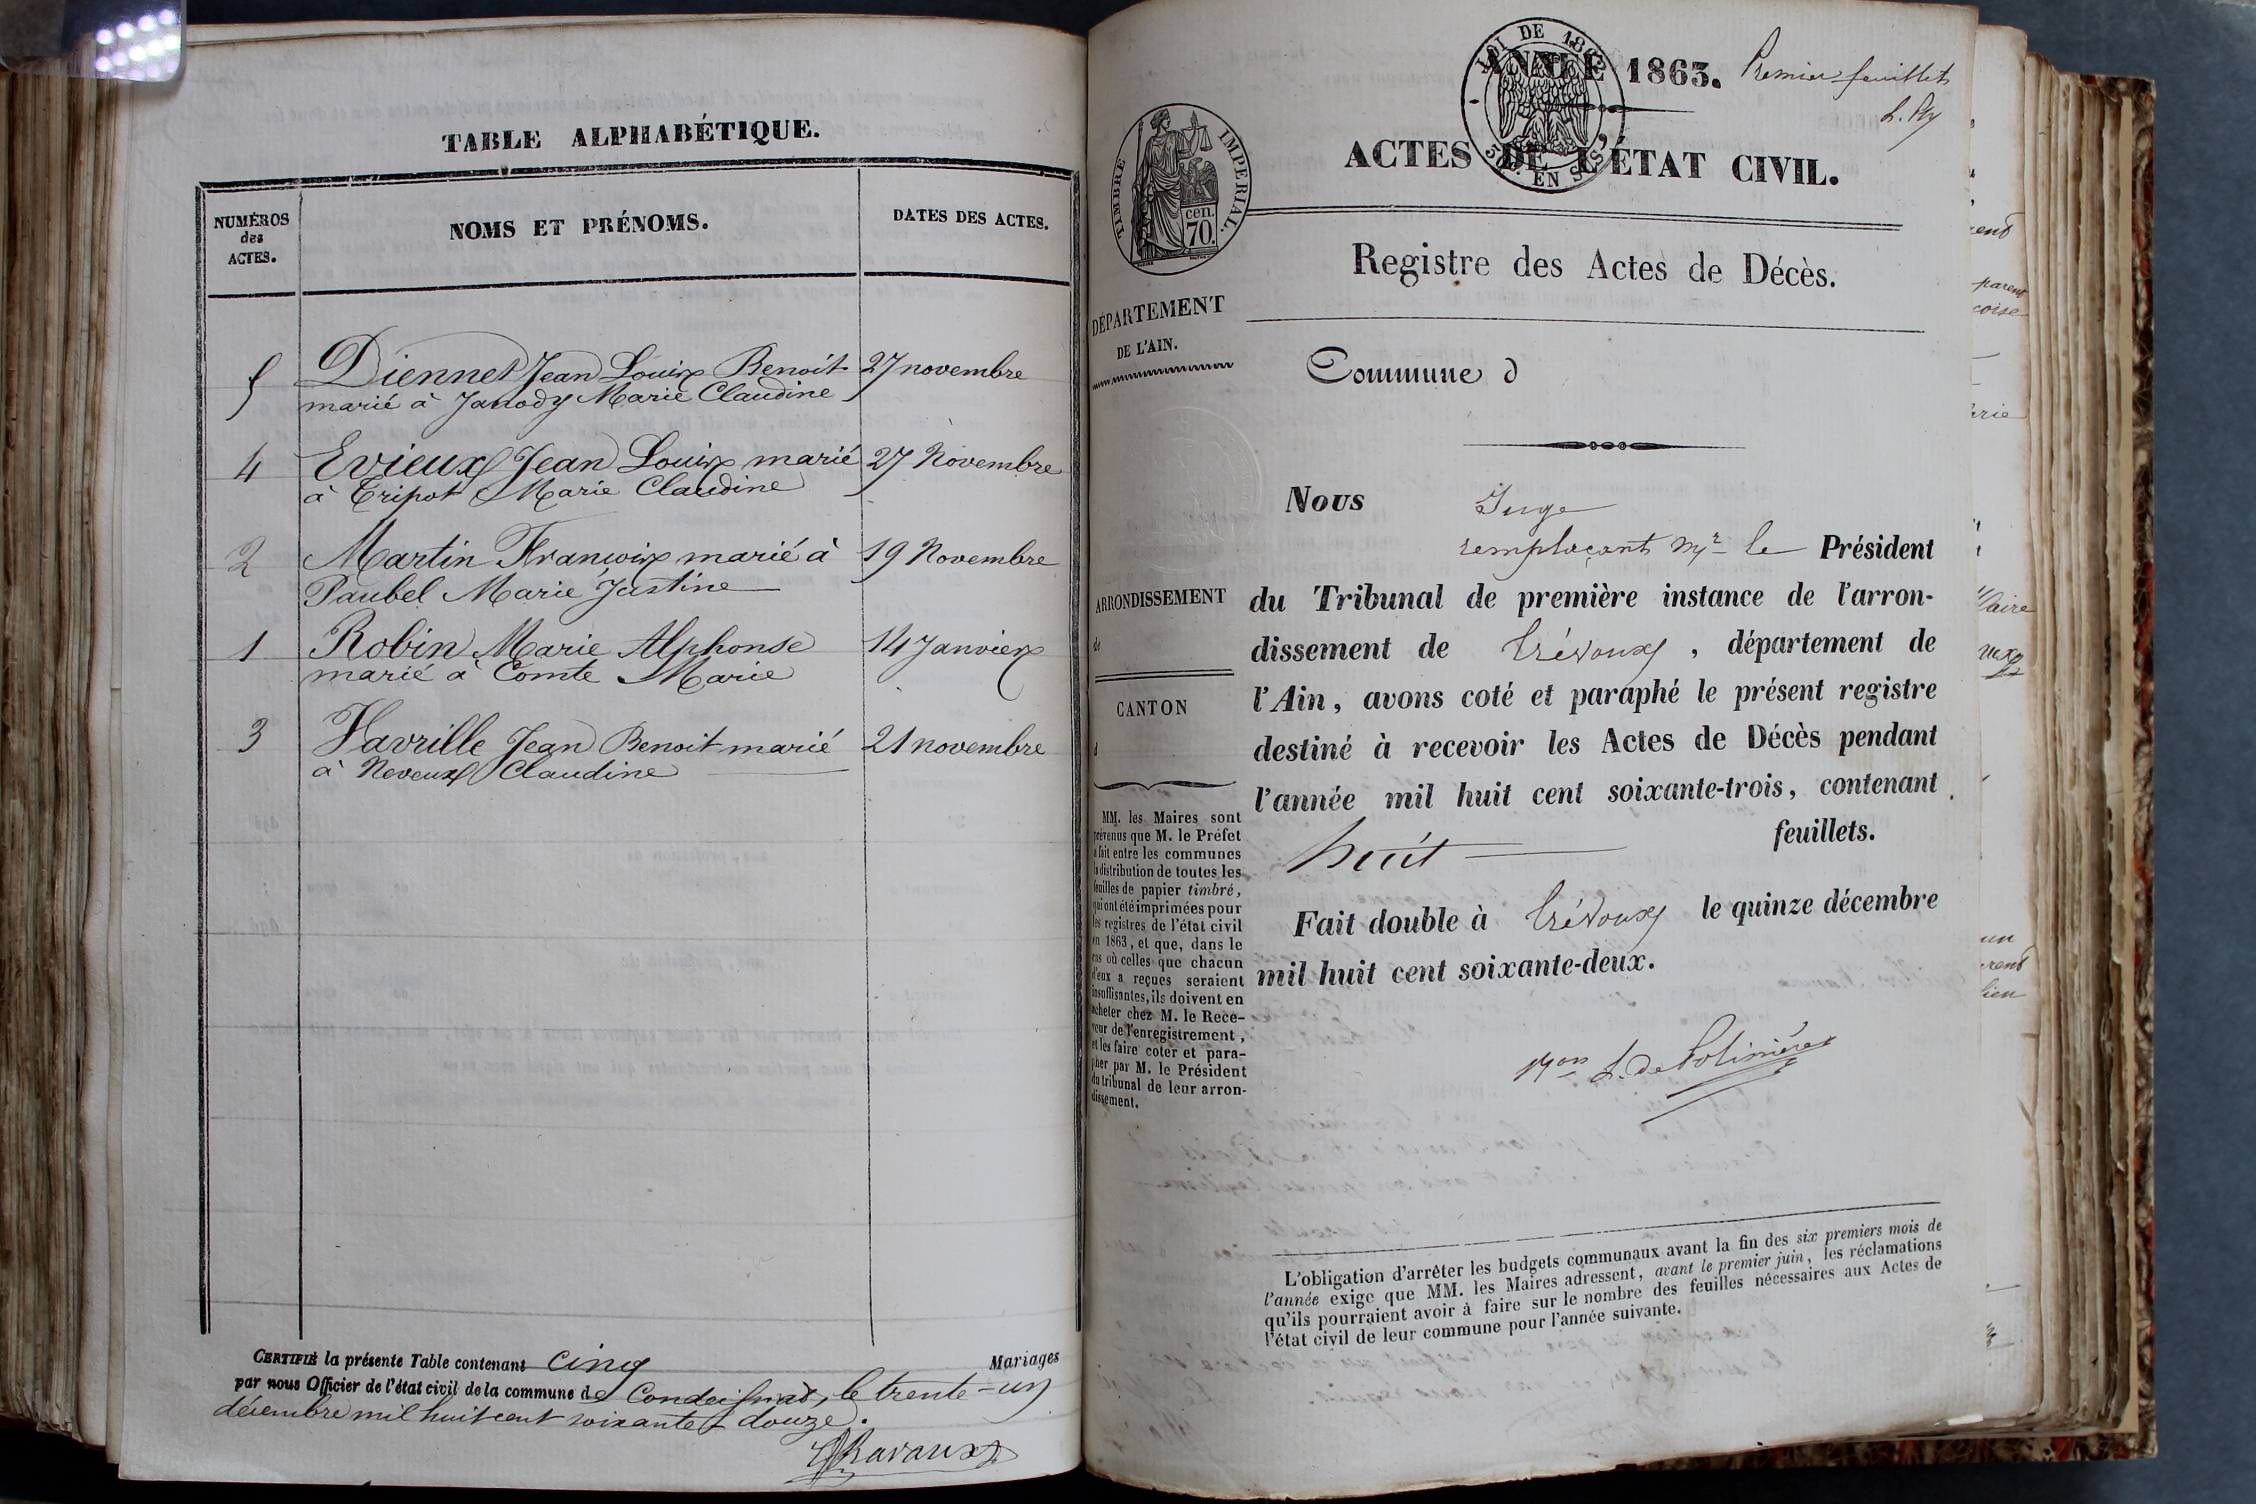 TABLE ALPHABÉTIQUE.
NUMÉROS
des
ACTES.
NOMS ET PRÉNOMS.
DATES DES ACTES.
5 Diennet Jean Louis Benoit 27 novembre
marié à Janody Marie Claudine
4 Evieux Jean Louis marié 27 Novembre
à Tripot Marie Claudine
2 Martin François marié à 19 Novembre
Paubel Marie Justine
1 Robin Marie Alphonse 14 Janvier
marié à Comte Marie
3 Vavrille Jean Benoit marié 21 novembre
à Neveux Claudine
CERTIFIÉ la présente Table contenant cinq Mariages
par nous Officier de l'état civil de la commune de Condeissiat, le trente-un
décembre mil huit cent soixante douze.
Ravaux
ANNÉE 1863.
LOI DE 1862
50C. EN SUS
Premier feuillet
TIMBRE IMPÉRIAL.
cen.
70.
ACTES DE L'ÉTAT CIVIL.
Registre des Actes de Décès.
DÉPARTEMENT
DE L'AIN.
Commune d
ARRONDISSEMENT
de
CANTON
d
MM. les Maires sont
prévenus que M. le Préfet
a fait entre les communes
la distribution de toutes les
feuilles de papier timbré,
qui ont été imprimées pour
les registres de l'état civil
en 1863, et que, dans le
cas où celles que chacun
d'eux a reçues seraient
insuffisantes, ils doivent en
acheter chez M. le Rece-
veur de l'enregistrement,
et les faire coter et para-
pher par M. le Président
du tribunal de leur arron-
dissement.
Nous Juge
remplaçant Mr le Président
du Tribunal de première instance de l'arron-
dissement de Trévoux, département de
l'Ain, avons coté et paraphé le présent registre
destiné à recevoir les Actes de Décès pendant
l'année mil huit cent soixante-trois, contenant
huit feuillets.
Fait double à Trévoux le quinze décembre
mil huit cent soixante-deux.
L. de Polinière
L'obligation d'arrêter les budgets communaux avant la fin des six premiers mois de
l'année exige que MM. les Maires adressent, avant le premier juin, les réclamations
qu'ils pourraient avoir à faire sur le nombre des feuilles nécessaires aux Actes de
l'état civil de leur commune pour l'année suivante.